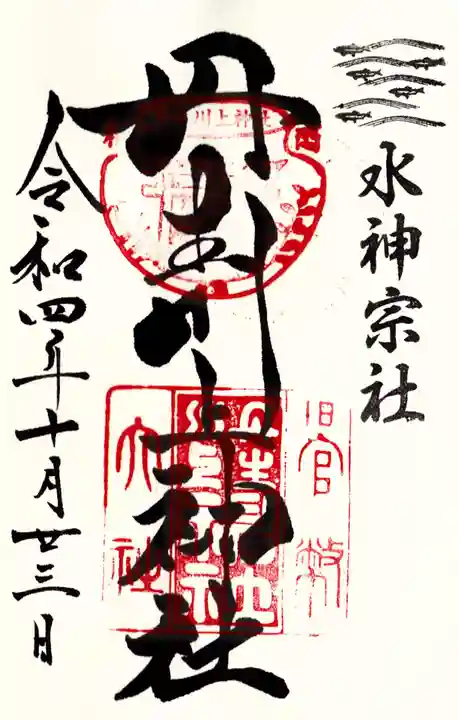 水神宗社
丹生川上神社
令和四年十月廿三日
川上神社
旧官幣
大社